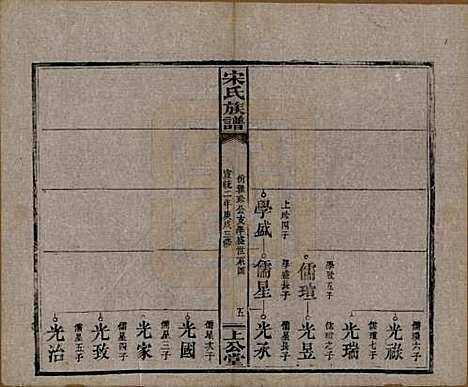 學盛
上珍四子
儒星
學盛長子
儒瑄
學盛五子
光祿
儒瑄六子
光瑞
儒瑄七子
光昱
儒瑄之子
光承
儒星長子
宋氏族譜
宣統二年庚戌三修
五
上公堂
光國
儒星次子
光家
儒星三子
光致
儒星四子
光治
儒星五子